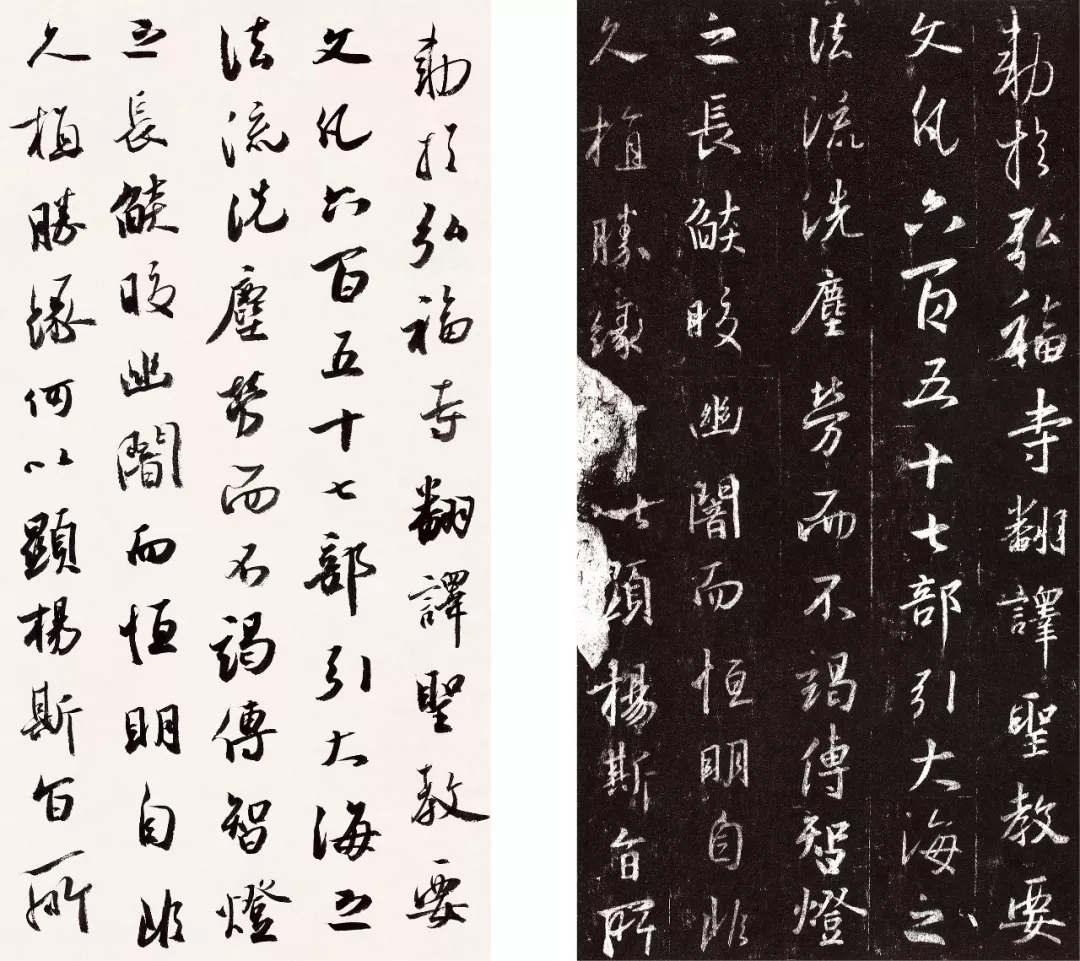 勅於弘福寺翻譯聖教要
文凡六百五十七部引大海之
法流洗塵勞而不竭傳智燈
之長燄晈幽闇而恒明自非
久植勝緣何以顯楊斯旨所
勅於弘福寺翻譯聖教要
文凡六百五十七部引大海之
法流洗塵勞而不竭傳智燈
之長燄晈幽闇而恒明自非
久植勝緣以顯楊斯旨所